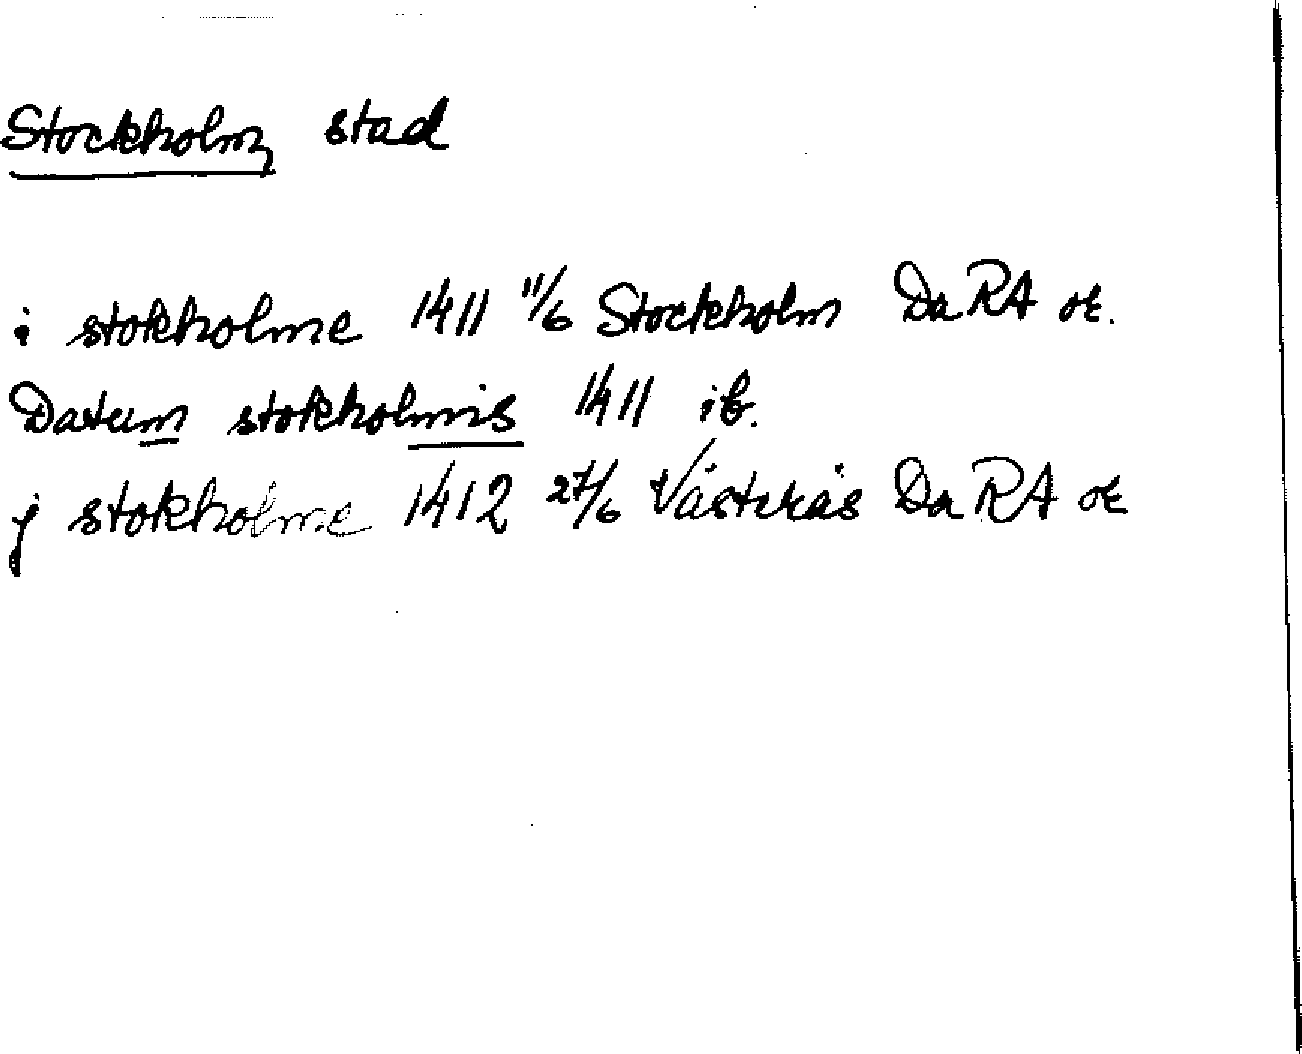 Stockholm, stad
i stokholme 1411 11/6 Stockholm DaRA or.
Datum stokholmis 1411 ib.
j stokholme 1412 27/6 Västerås DaRA or